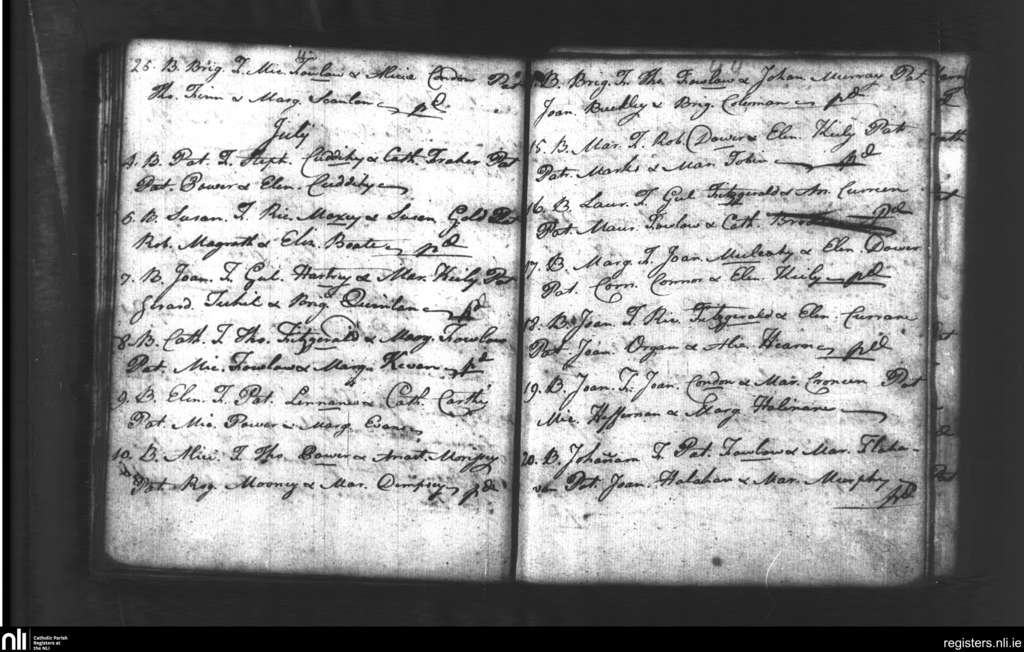 42
25. B. Brig. F. Mic. Fowlow & Alicia Condon Pat
Tho. Finn & Marg. Scanlon pd.
July
B. Pat. F. Steph. Cuddihy & Cath. Fraher Pat
Pat. Power & Elen. Cuddihy
6. B. Susan. F. Ric. Maxey & Susan Gold Pat
Rob. Magrath & Eliz. Boate pd
7. B. Joan. F. Gul. & Mar. Keily Pat
Gerard. & Brig. Quinlan pd
8. B. Cath. F. Tho. Fitzgerald & Marg. Fowlow
Pat. Mic. Fowlow & Marg. Kevan pd
9. B. Elin. F. Pat. Lennane & Cath. Carthy
Pat. Mic. Power & Marg.
10. B. Alici. F. Tho. Power & Anast.
Pat Rog. Mooney & Mar. Dempsey pd
B. Brig. F. Tho. Fowlow & Johan. Murray Pat
Joan. Buckley & Brig. Coleman pd
15. B. Mar. F. Rob. Dower & Elen. Keily Pat
Pat. Marks & Mar. Tobin pd
16. B. Laur. F. Gul. Fitzgerald & An. Curreen
Pat. Maur. Fowlow & Cath. pd
17. B. Marg. F. Joan. Mulcahy & Elen. Dower
Pat. Corn. Connor & Elen. Keily pd
18. B. Joan. F. Ric. Fitzgerald & Elen. Currane
Pat. Joan. Organ & Alia. Hearn pd
19. B. Joan. F. Joan. Condon & Mar. Croneen Pat
Mic. Heffernan & Marg. Halinane
20. B. Johannam F. Pat. Fowlow & Mar. Flaha-
van Pat. Joan. Halahan & Mar. Murphy pd
nli
Catholic Parish
Registers at
the NLI
registers.nli.ie